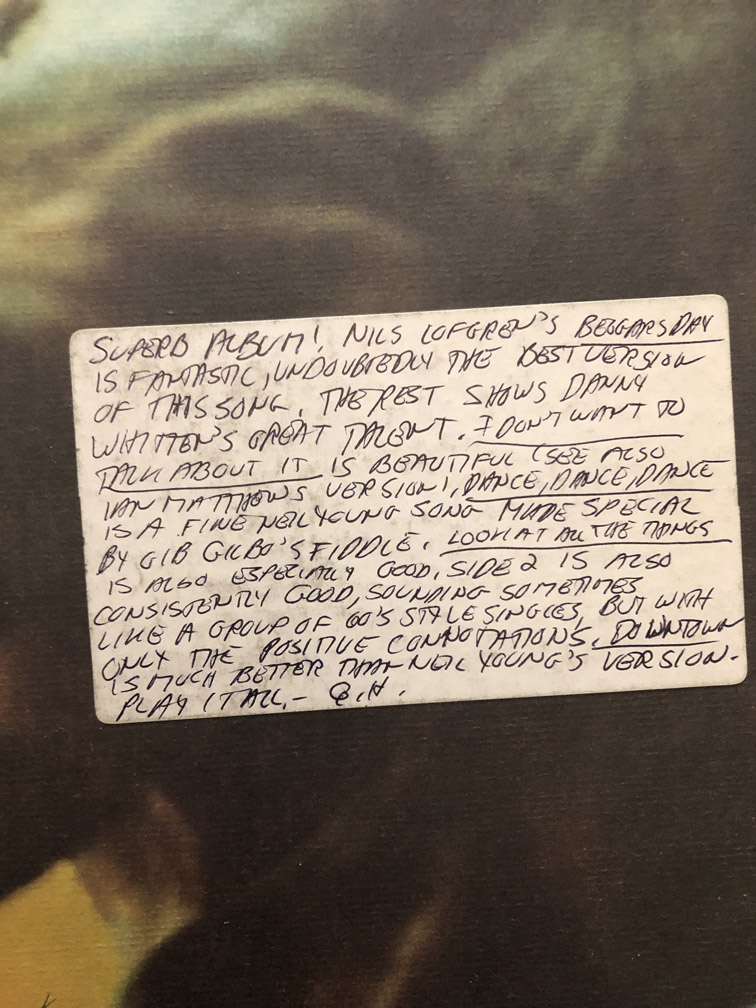 SUPERB ALBUM! NILS LOFGREN'S BEGGARS DAY
IS FANTASTIC, UNDOUBTEDLY THE BEST VERSION
OF THIS SONG. THE REST SHOWS DANNY
WHITTEN'S GREAT TALENT. I DON'T WANT TO
TALK ABOUT IT IS BEAUTIFUL (SEE ALSO
IAN MATTHEWS VERSION), DANCE, DANCE, DANCE
IS A FINE NEIL YOUNG SONG MADE SPECIAL
BY GIB GILBO'S FIDDLE. LOOK AT ALL THE THINGS
IS ALSO ESPECIALLY GOOD. SIDE 2 IS ALSO
CONSISTENTLY GOOD, SOUNDING SOMETIMES
LIKE A GROUP OF 60'S STYLE SINGLES, BUT WITH
ONLY THE POSITIVE CONNOTATIONS. DOWNTOWN
IS MUCH BETTER THAN NEIL YOUNG'S VERSION.
PLAY IT ALL. –